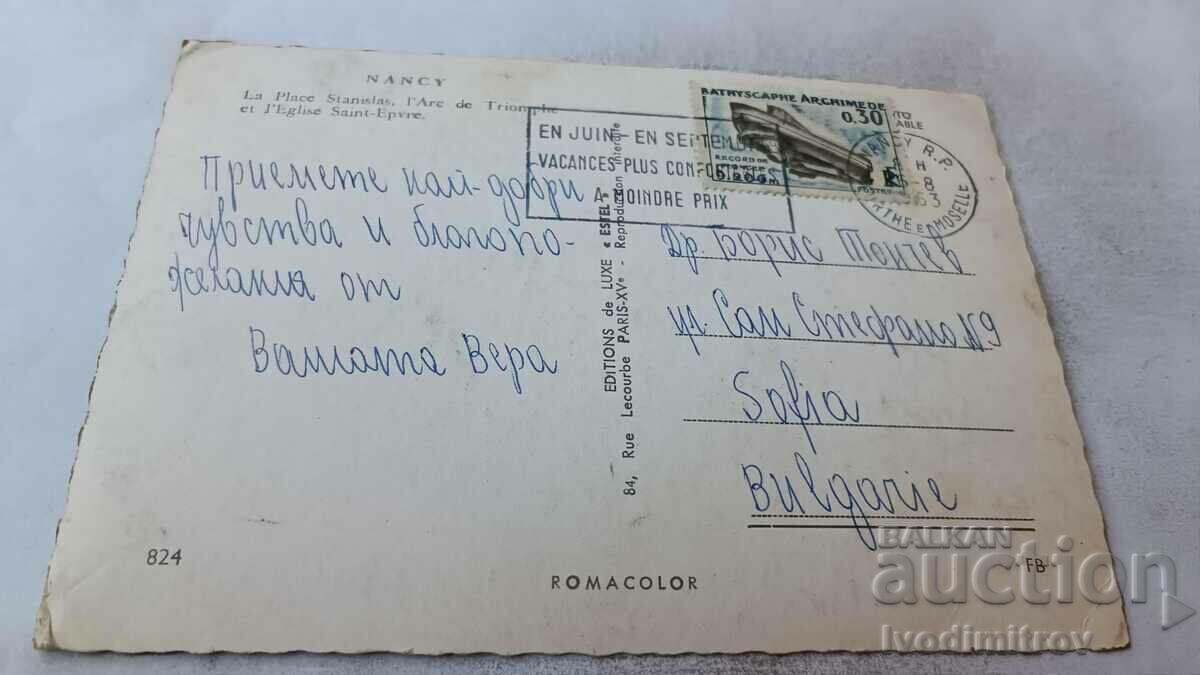 NANCY
La Place Stanislas, l'Arc de Triomphe
et l'Eglise Saint-Epvre.
EN JUIN - EN SEPTEMBRE
VACANCES PLUS CONFORTABLES
A MOINDRE PRIX
BATHYSCAPHE ARCHIMEDE
0,30
RECORD DE
PLONGEE
9.200m
POSTES
R.P.
8
MEURTHE ET MOSELLE
Приемете най-добри
чувства и благопо-
желания от
Вашата Вера
EDITIONS de LUXE « ESTEL »
84, Rue Lecourbe PARIS-XVe - Reproduction Interdite
Др. Борис Тончев
ул. Сан Стефано N9
Sofia
Bulgarie
824
ROMACOLOR
FB
BALKAN
auction
Ivodimitrov